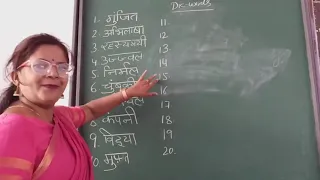 D.K. words
1. गुंजित 11.
2. अभिलाषा 12
3 रहस्यमयी 13.
4 उज्ज्वल 14
5. निर्मल 15
6. चंचल 16
17
8. कंपनी 18
9. विद्या 19
10. मुफ़्त 20.